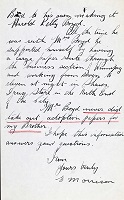 Boyd to his name making it
Harold Kelly Boyd.
All the time he
was with Mr. Boyd he
supported himself by having
a large paper route through
the business section of Winnipeg
and working from dinner
to eleven at night in
Drug Store in the north End
of the city.
Mr. Boyd never did
take out adoption papers for
my Brother.
I hope this information
answers your questions.
I am
Yours truly
E Morrison